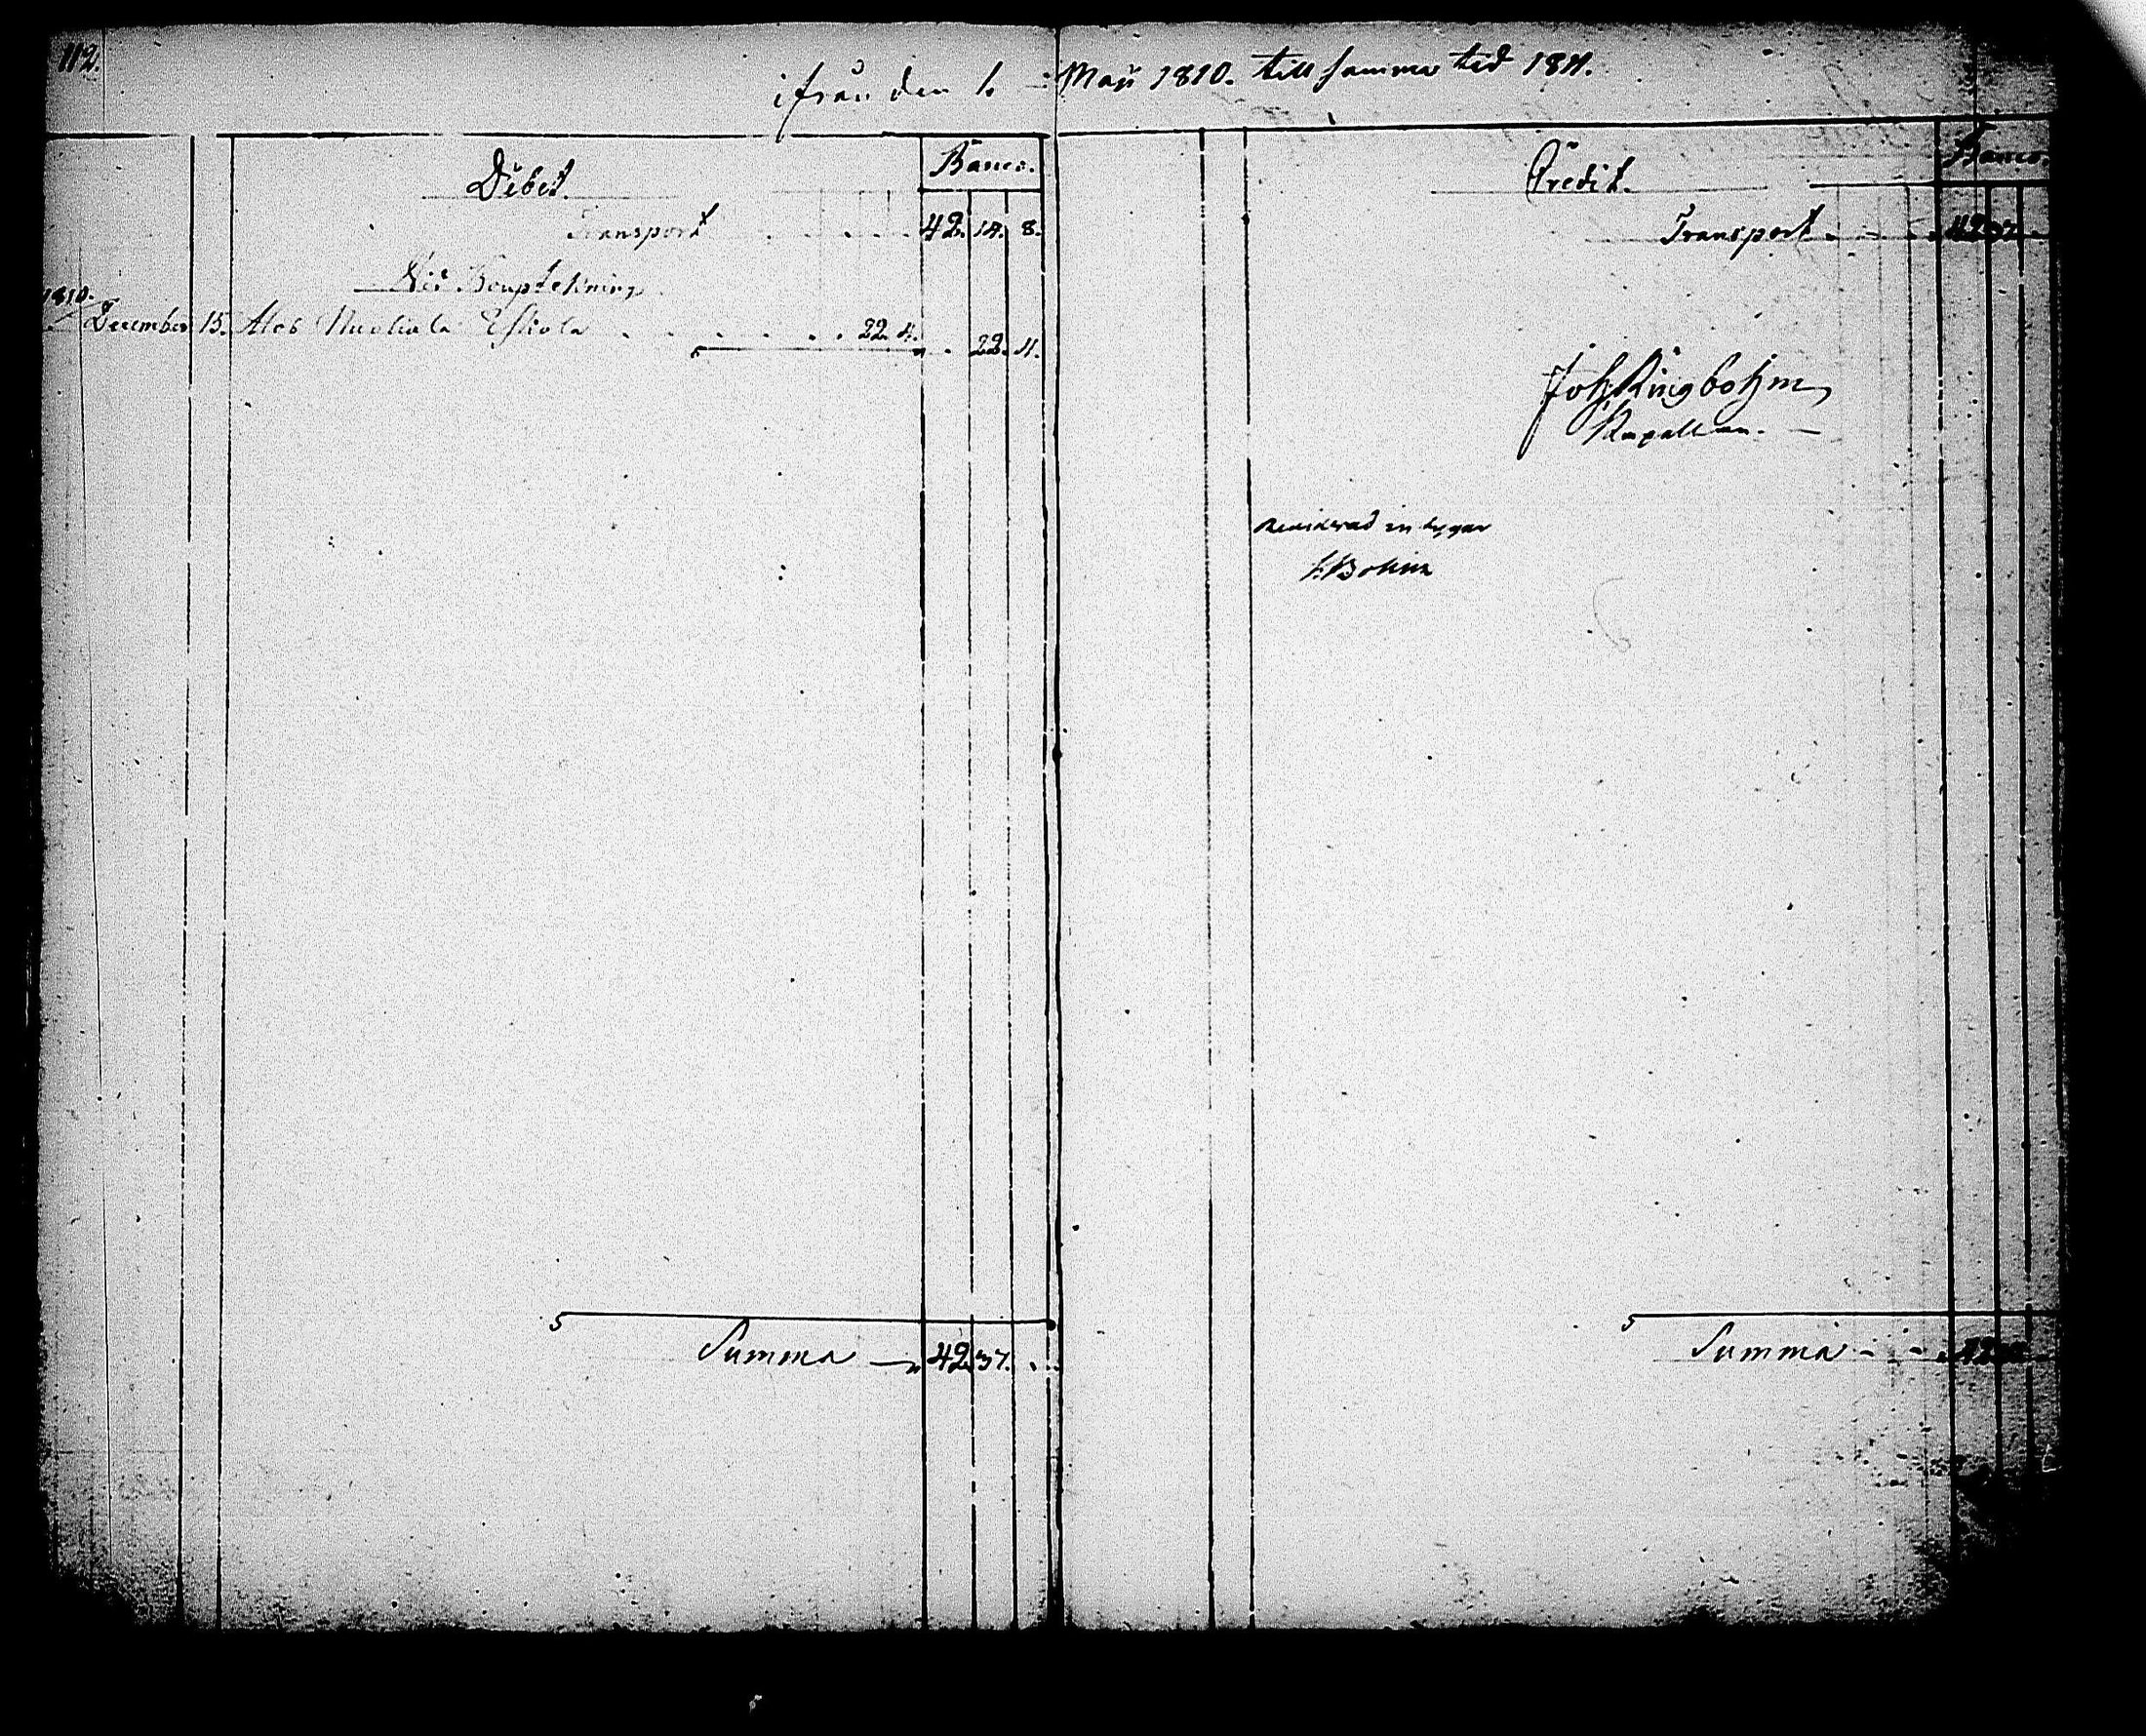 112.
ifrån den 1. Maji 1810. till samma tid 1811.
Debet. Banco.
Transport 42. 14. 8.
Vid Bouptekning
1810.
December 15. Eskola 22. 4.
22. 4.
Summa 42. 37.
Credit. Banco.
Transport 42 37
Joh Ringbohm
Kapellan.
Reviderad intygar
Bohm
Summa 42